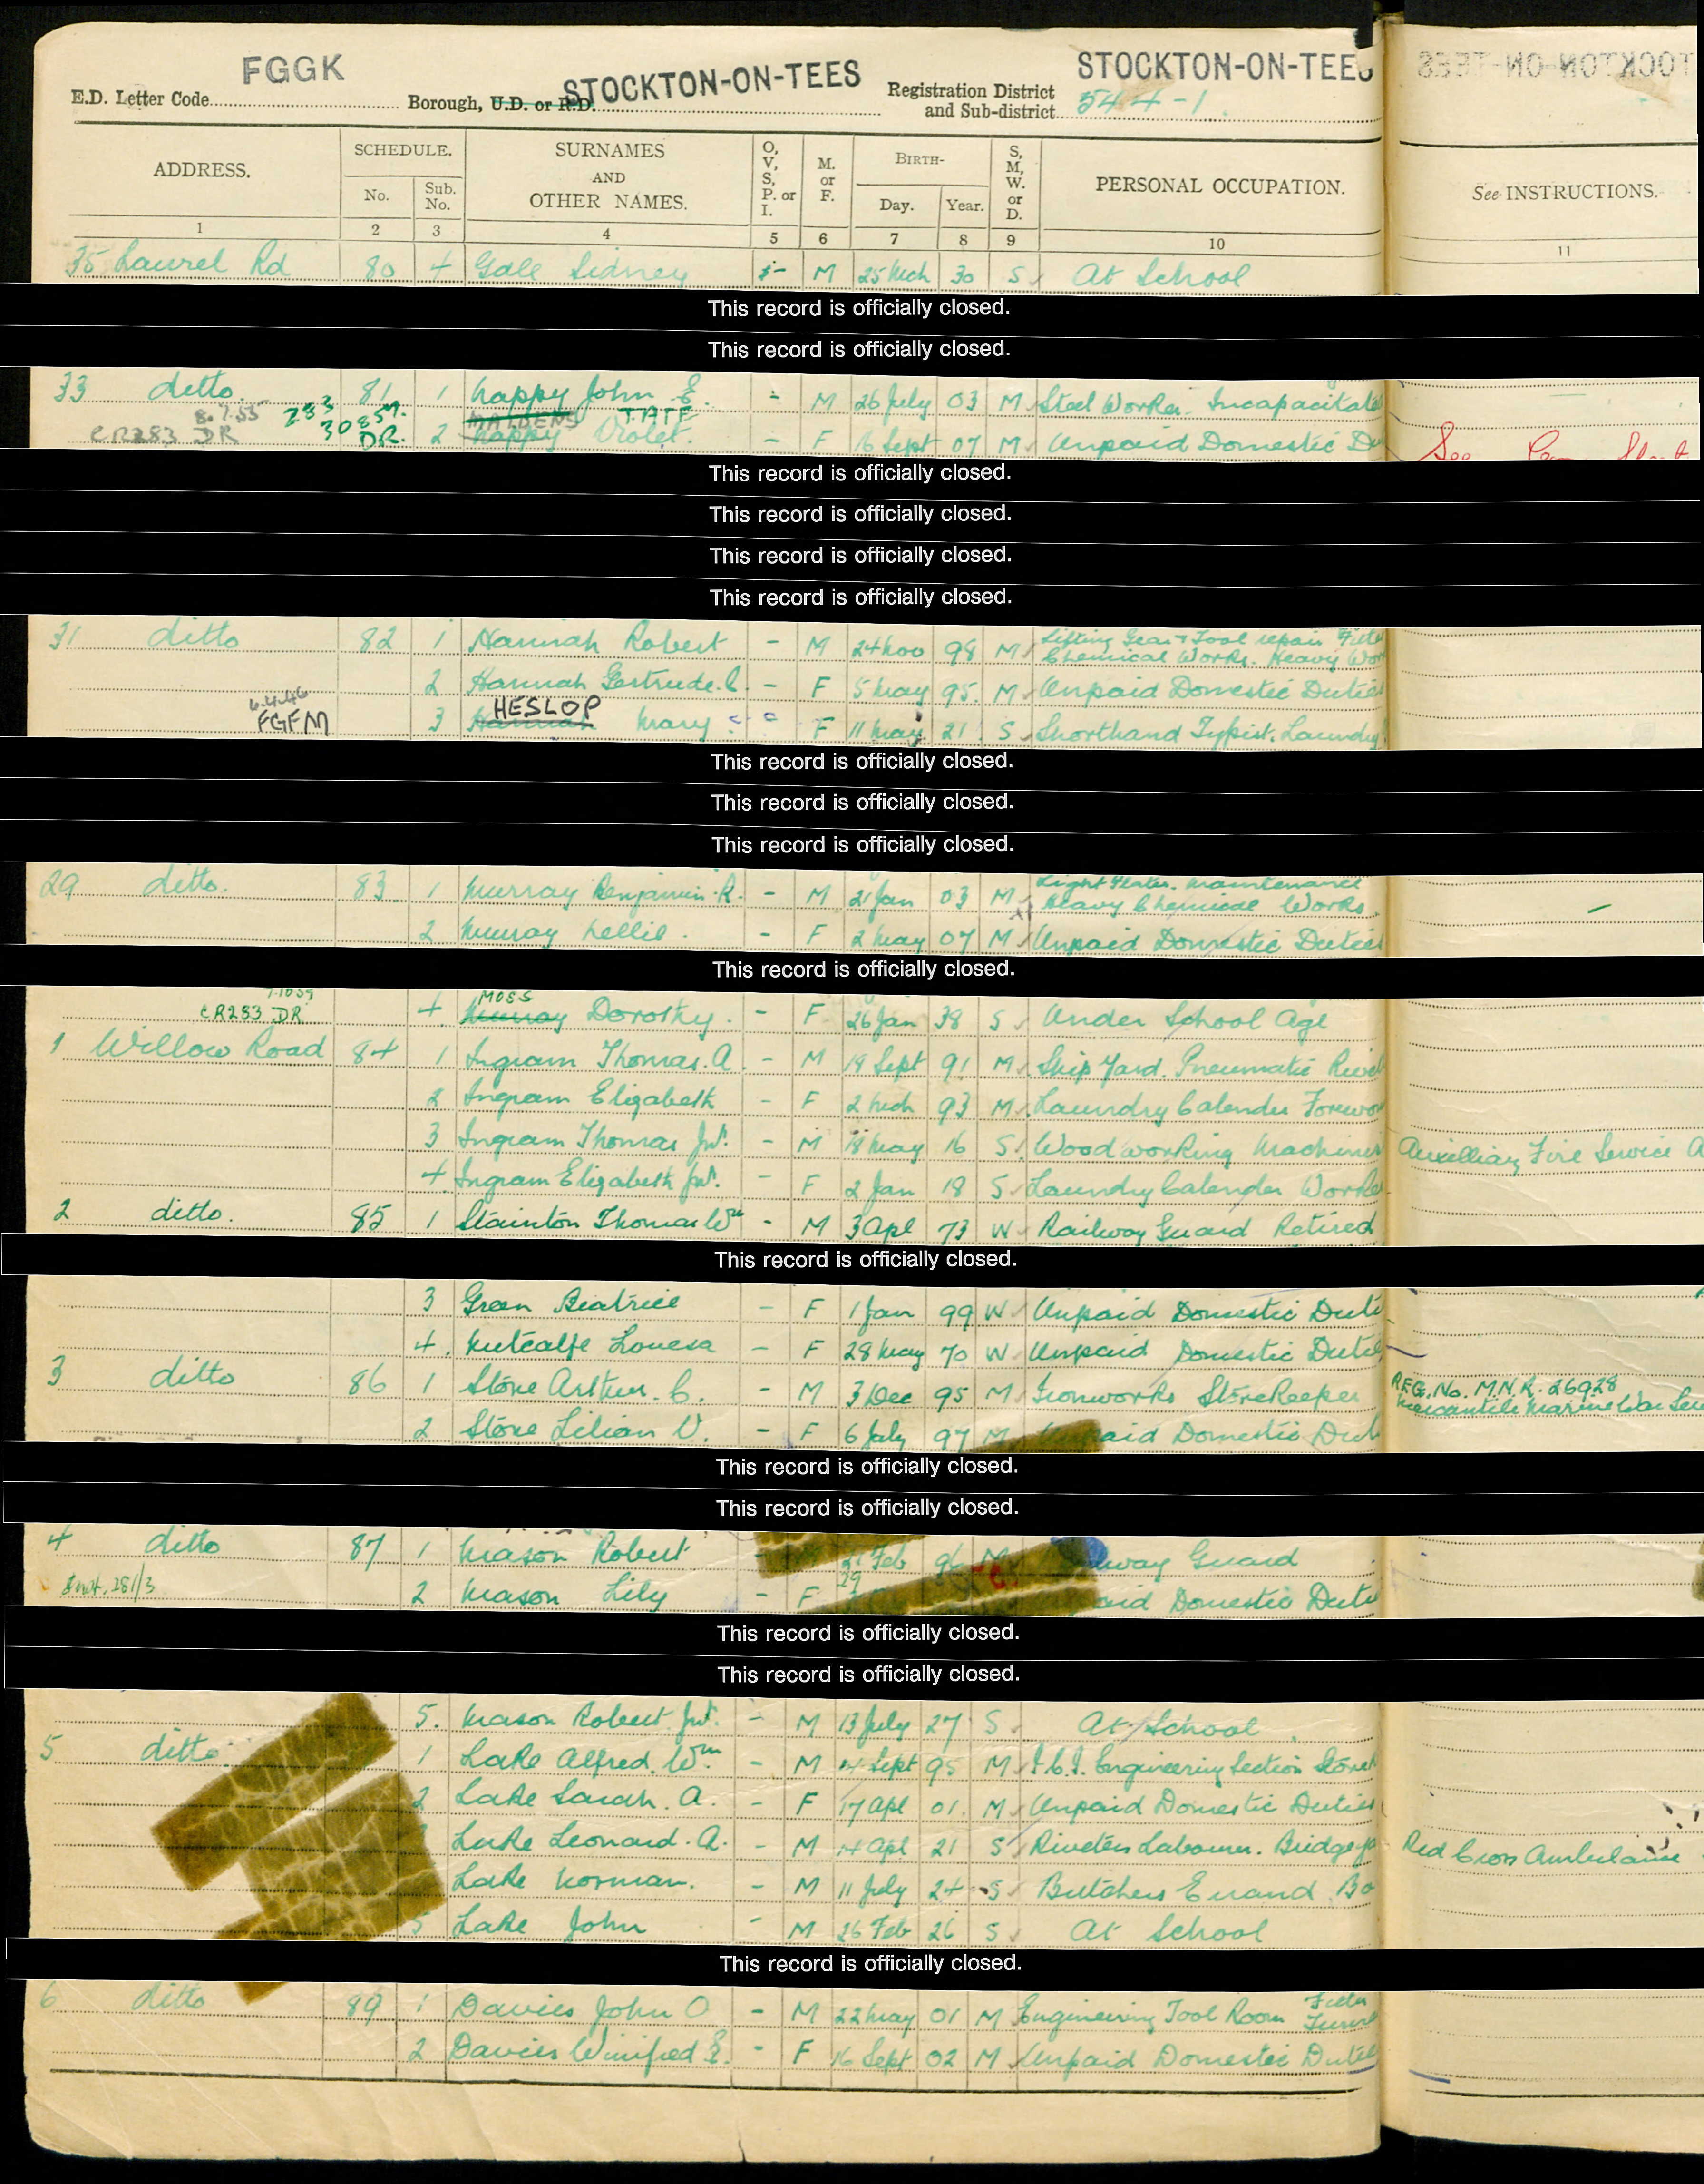 FGGK STOCKTON-ON-TEES STOCKTON-ON-TEES
E.D. Letter Code Borough, U.D. or R.D. Registration District and Sub-district 544-1
ADDRESS. SCHEDULE. No. Sub. No. SURNAMES AND OTHER NAMES. O, V, S, P. or I. M. or F. BIRTH- Day. Year. S, M, W. or D. PERSONAL OCCUPATION. See INSTRUCTIONS.
1 2 3 4 5 6 7 8 9 10 11
35 Laurel Rd 80 4 Gale Sidney - M 25 Mch 30 S At School
This record is officially closed.
This record is officially closed.
33 ditto 81 1 Nappy John E. - M 26 July 03 M Steel Worker. Incapacitate
8.7.55 TATE
CR283 DR DR. 2 Nappy Violet. - F 16 Sept 07 M Unpaid Domestic Du See
This record is officially closed.
This record is officially closed.
This record is officially closed.
This record is officially closed.
31 ditto 82 1 Hannah Robert - M 24 Nov 98 M Lifting Gear & Tool repair
Chemical Works. Heavy Wor
2 Hannah Gertrude. C. - F 5 May 95. M Unpaid Domestic Duties
FGFM 3 Hannah HESLOP Mary - F 11 May 21 S Shorthand Typist. Laundry
This record is officially closed.
This record is officially closed.
This record is officially closed.
29 ditto. 83 1 Murray Benjamin. R. - M 21 Jan 03 M Light Plater. Maintenance
Heavy Chemical Works.
2 Murray Nellie. - F 2 May 07 M Unpaid Domestic Duties
This record is officially closed.
CR283 DR 4 Murray MOSS Dorothy. - F 26 Jan 38 S Under School Age
1 Willow Road 84 1 Ingram Thomas. A. - M 19 Sept 91 M Ship Yard. Pneumatic Rivet
2 Ingram Elizabeth - F 2 Mch 93 M Laundry Calender Forewo
3 Ingram Thomas Jnr. - M 18 May 16 S Woodworking Machinist Auxilliary Fire Service A
4 Ingram Elizabeth Jnr. - F 2 Jan 18 S Laundry Calender Worker
2 ditto. 85 1 Stainton Thomas Wm - M 3 Apl 73 W Railway Guard Retired
This record is officially closed.
3 Green Beatrice - F 1 Jan 99 W Unpaid Domestic Duti
4. Metcalfe Louesa - F 28 May 70 W Unpaid Domestic Duties
3 ditto 86 1 Stone Arthur. C. - M 3 Dec 95 M Ironworks Storekeeper REG. No. M.N.R. 26928
Mercantile Marine War Ser
2 Stone Lilian V. - F 6 July 97 M Unpaid Domestic Dut
This record is officially closed.
This record is officially closed.
4 ditto 87 1 Mason Robert - Feb 96 M way Guard
2 Mason Lily - F aid Domestic Duti
This record is officially closed.
This record is officially closed.
5. Mason Robert Jnr. - M 13 July 27 S At School
5 ditto 1 Lake Alfred. Wm. - M 4 Sept 95 M I.C.I. Engineering Section Storek
2 Lake Sarah. A. - F 17 Apl 01. M Unpaid Domestic Duties
Lake Leonard. A. - M 14 Apl 21 S Riveters Labourer. Bridge ya Red Cross Ambulance
Lake Norman. - M 11 July 24 S Butchers Errand Bo
5 Lake John - M 26 Feb 26 S At School
This record is officially closed.
6 ditto 89 1 Davies John O - M 22 May 01 M Engineering Tool Room
2 Davies Winifred E. - F 16 Sept 02 M Unpaid Domestic Duties